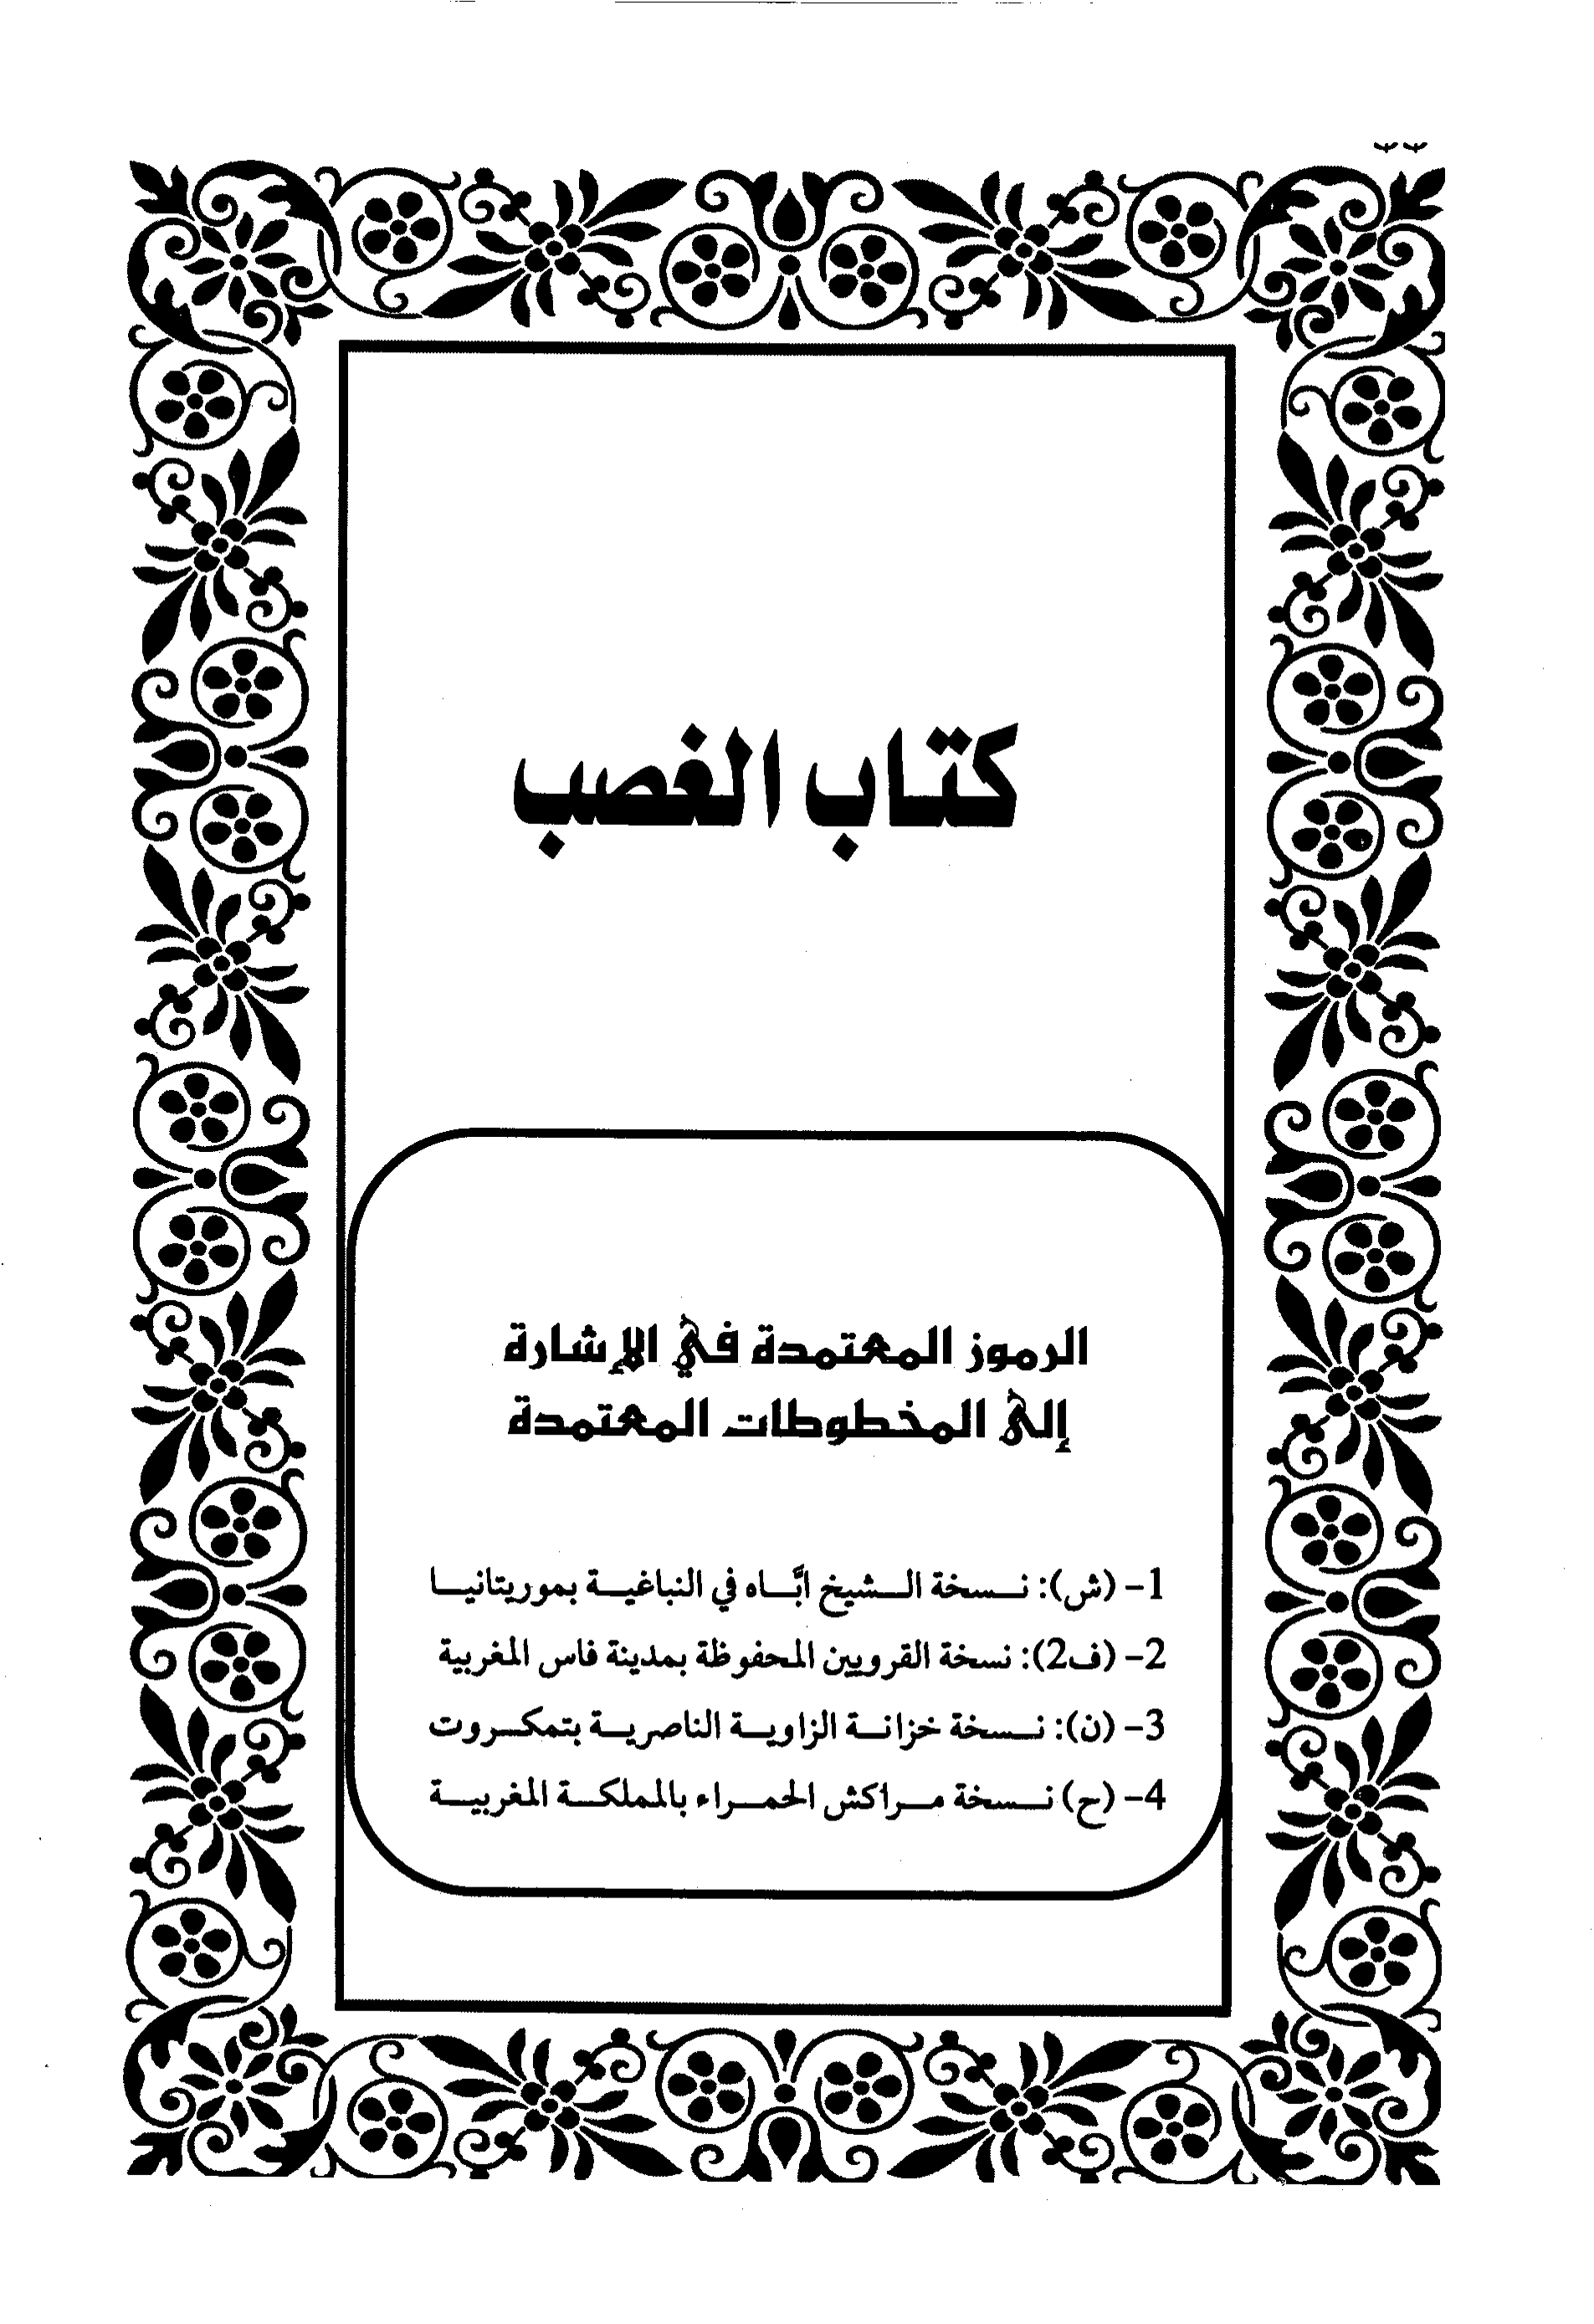 كتاب الغصب
الرموز المعتمدة في الإشارة
إلى المخطوطات المعتمدة
1- (ش): نسخة الشيخ ابَّاه في النباغية بموريتانيا
2- (ف2): نسخة القرويين المحفوظة بمدينة فاس المغربية
3- (ن): نسخة خزانة الزاوية الناصرية بتمكروت
4- (ح) نسخة مراكش الحمراء بالمملكة المغربية